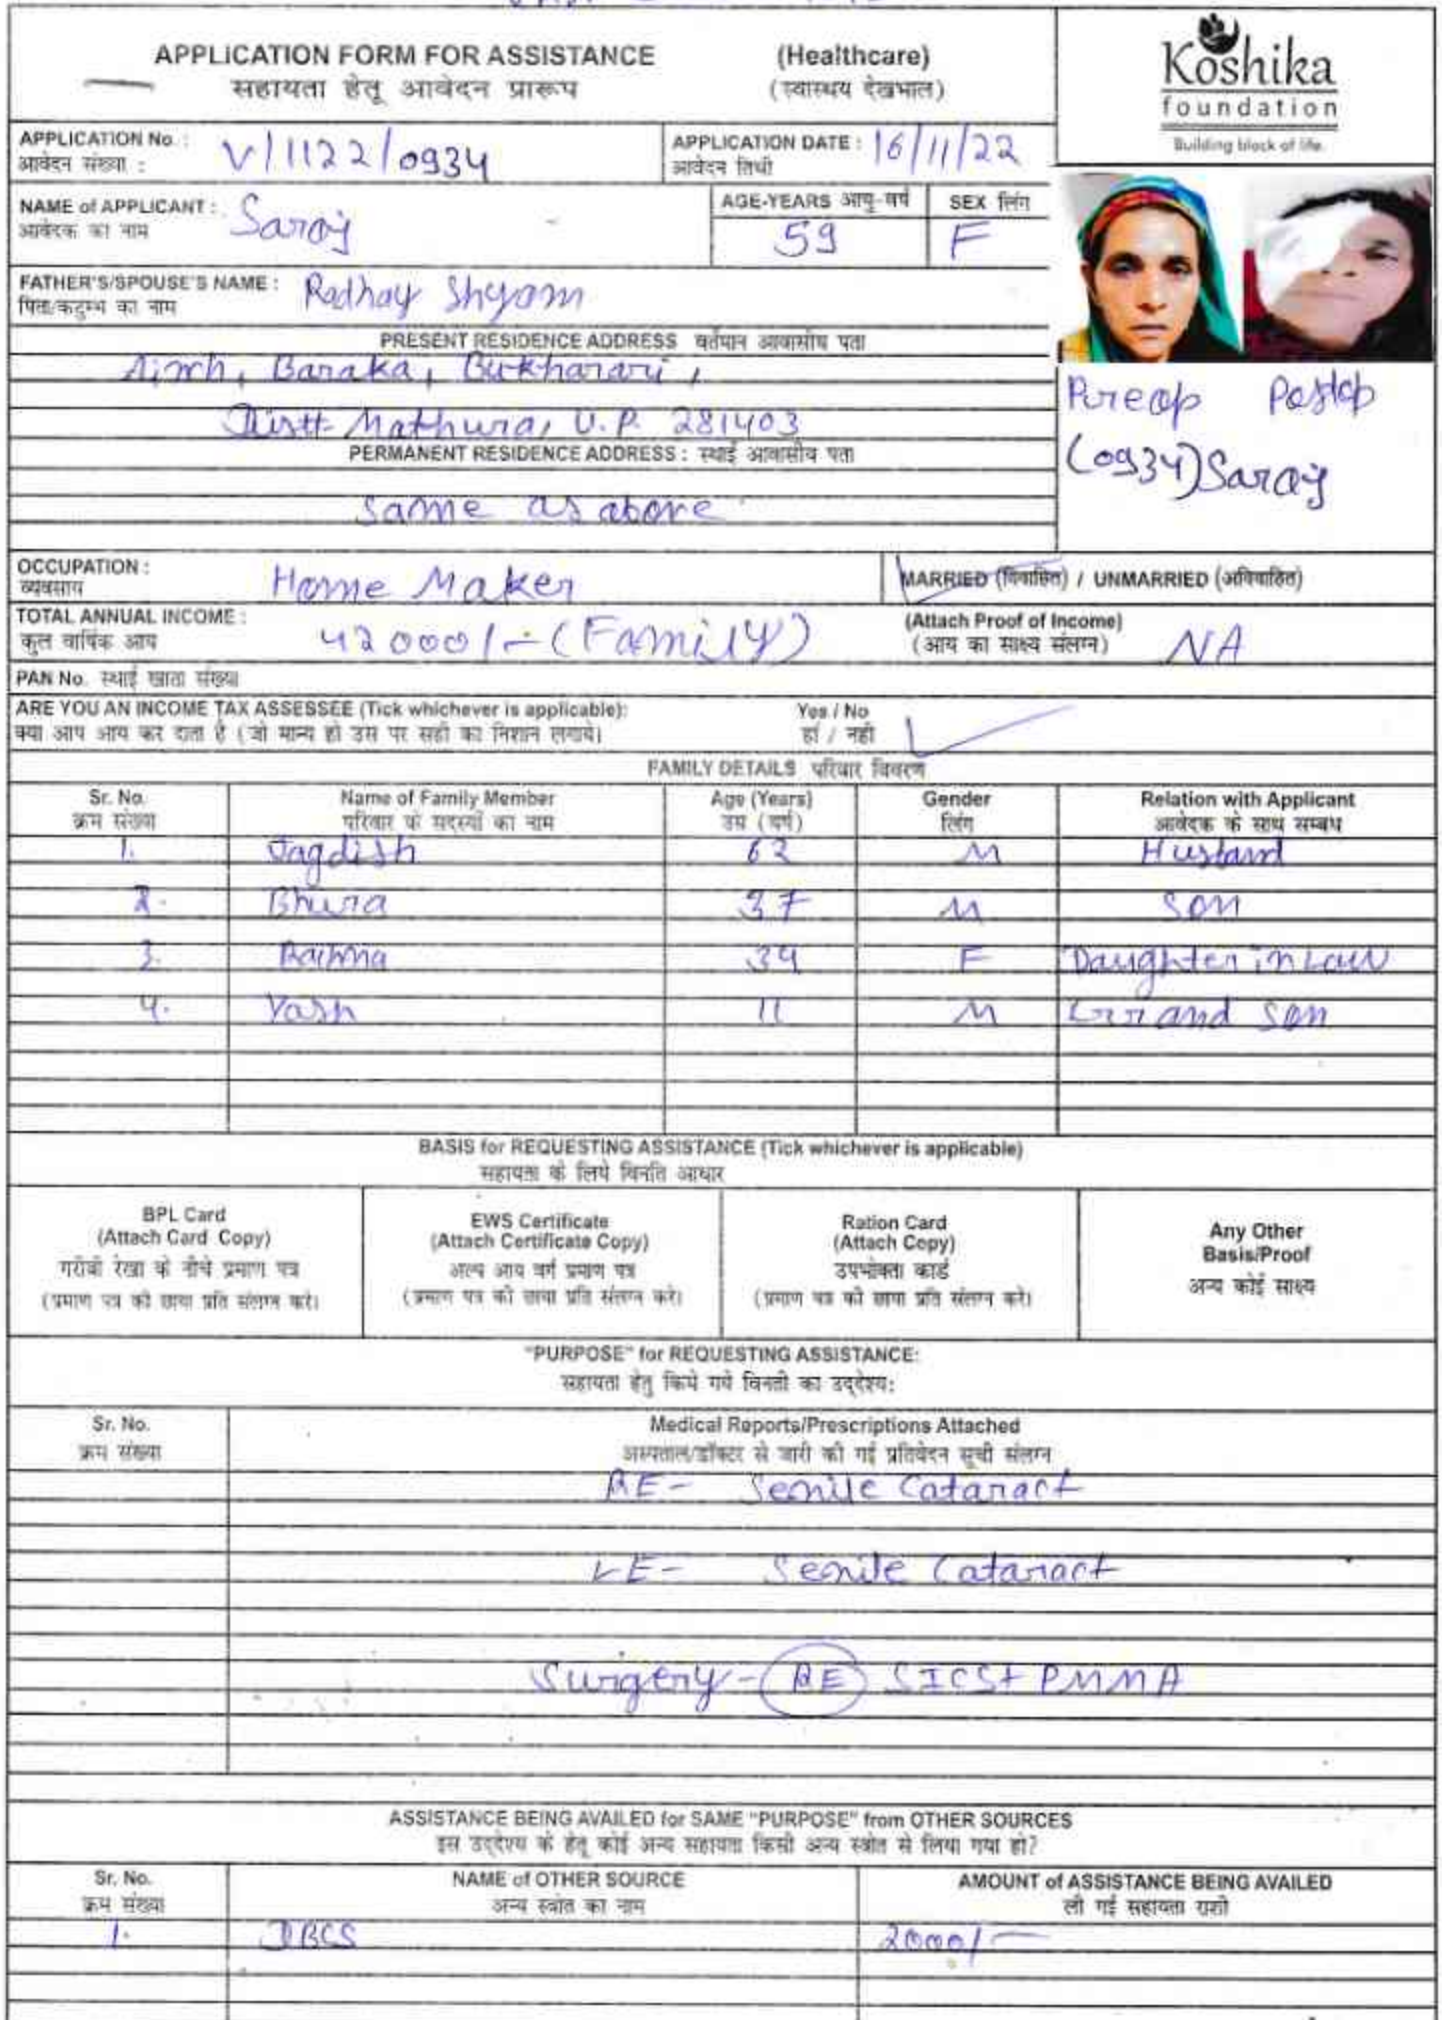 APPLICATION FORM FOR ASSISTANCE (Healthcare)
सहायता हेतू आवेदन प्रारूप (स्वास्थय देखभाल)
Koshika
foundation
Building block of life.
APPLICATION No. : V/1122/0934
आवेदन संख्या :
APPLICATION DATE : 16/11/22
आवेदन तिथी
NAME of APPLICANT : Saroj
आवेदक का नाम
AGE-YEARS आयु-वर्ष 59
SEX लिंग F
FATHER'S/SPOUSE'S NAME : Radhay Shyam
पिता/कटुम्भ का नाम
PRESENT RESIDENCE ADDRESS वर्तमान आवासीय पता
Baraka, Bukharari,
Distt- Mathura, U.P. 281403
PERMANENT RESIDENCE ADDRESS : स्थाई आवासीय पता
Same as above
Preop Postop
(0934) Saroj
OCCUPATION : Home Maker
व्यवसाय
MARRIED (विवाहित) / UNMARRIED (अविवाहित)
TOTAL ANNUAL INCOME : 42000/-(Family)
कुल वार्षिक आय
(Attach Proof of Income) NA
(आय का साक्ष्य संलग्न)
PAN No. स्थाई खाता संख्या
ARE YOU AN INCOME TAX ASSESSEE (Tick whichever is applicable): Yes / No
क्या आप आय कर दाता है (जो मान्य हो उस पर सही का निशान लगाये। हां / नही
FAMILY DETAILS परिवार विवरण
Sr. No. Name of Family Member Age (Years) Gender Relation with Applicant
क्रम संख्या परिवार के सदस्यों का नाम उम्र (वर्ष) लिंग आवेदक के साथ सम्बध
1. Jagdish 62 M Husband
2. Bhura 37 M Son
3. 34 F Daughter in Law
4. Yash 11 M Grand Son
BASIS for REQUESTING ASSISTANCE (Tick whichever is applicable)
सहायता के लिये विनति आधार
BPL Card
(Attach Card Copy)
गरीबी रेखा के नीचे प्रमाण पत्र
(प्रमाण पत्र की छाया प्रति संलग्न करे।
EWS Certificate
(Attach Certificate Copy)
अल्प आय वर्ग प्रमाण पत्र
(प्रमाण पत्र की छाया प्रति संलग्न करे।
Ration Card
(Attach Copy)
उपभोक्ता कार्ड
(प्रमाण पत्र की छाया प्रति संलग्न करे।
Any Other
Basis/Proof
अन्य कोई साक्ष्य
"PURPOSE" for REQUESTING ASSISTANCE:
सहायता हेतु किये गये विनती का उद्देश्य:
Sr. No. Medical Reports/Prescriptions Attached
क्रम संख्या अस्पताल/डॉक्टर से जारी की गई प्रतिवेदन सूची संलग्न
RE- Senile Cataract
LE- Senile Cataract
Surgery - RE SICS+ PMMA
ASSISTANCE BEING AVAILED for SAME "PURPOSE" from OTHER SOURCES
इस उद्देश्य के हेतू कोई अन्य सहायता किसी अन्य स्त्रोत से लिया गया हो?
Sr. No. NAME of OTHER SOURCE AMOUNT of ASSISTANCE BEING AVAILED
क्रम संख्या अन्य स्त्रोत का नाम ली गई सहायता राशी
1. DBCS 2000/-